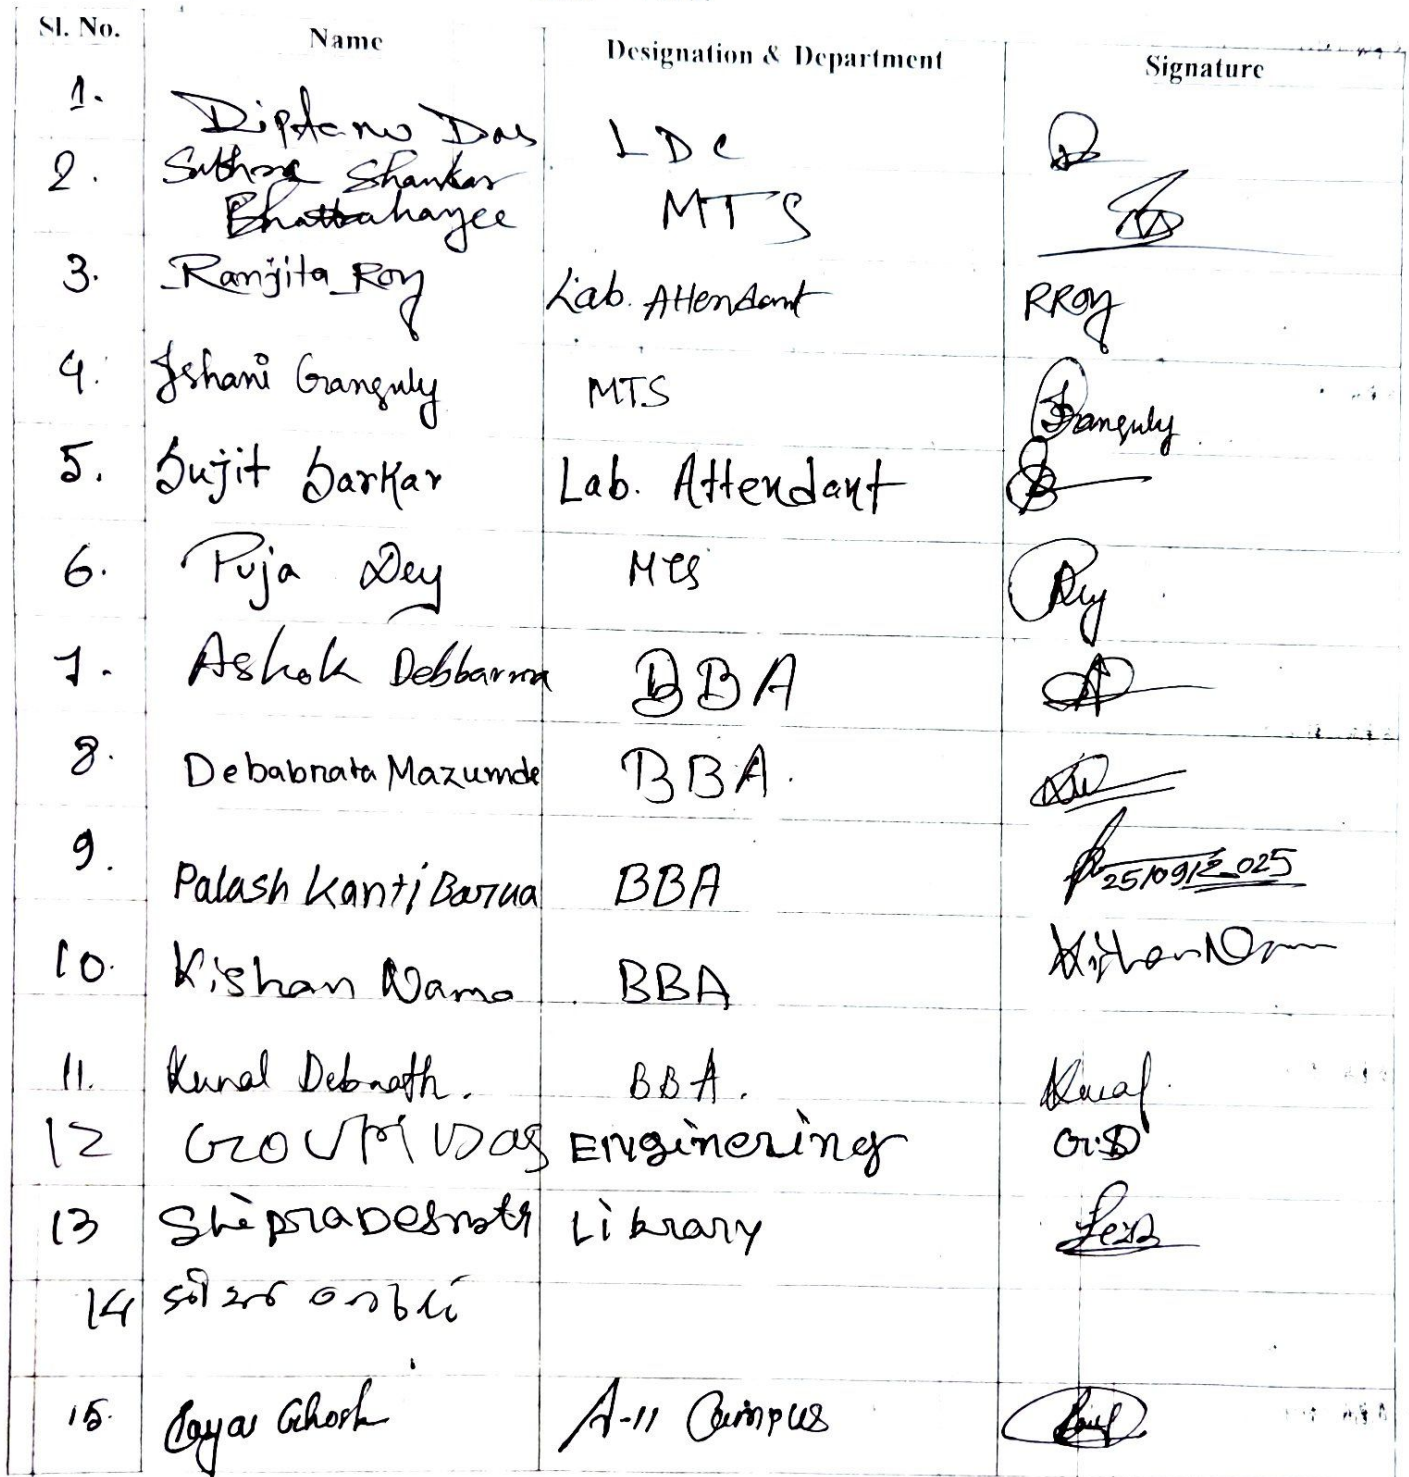 Sl. No. Name Designation & Department Signature
1. Diptanu Das LDC
2. Shankar
Bhattahayee MTS
3. Ranjita Roy Lab. Attendant RRoy
4. Ishani Ganguly MTS Ganguly
5. Sujit Sarkar Lab. Attendant
6. Puja Dey MTS Dey
7. Ashok Debbarma BBA
8. Debabrata Mazumde BBA.
9. Palash Kanti Barua BBA 25/09/2025
10. Kishan Nama BBA Kishan Nam
11. Kunal Debnath. BBA. Kunal
12 Gouri Das Enginering G.D
13 Library
14
15. Ghosh A-11 Campus